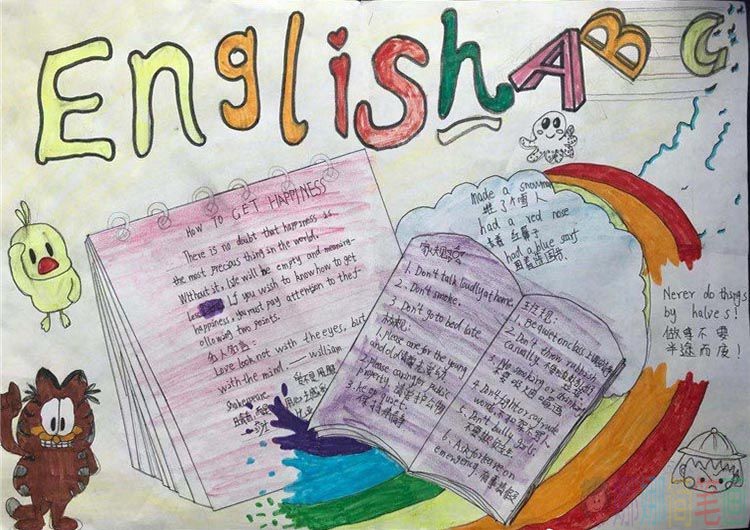 English ABC
HOW TO GET HAPPINESS
There is no doubt that happiness is
the most precious thing in the world.
Without it, life will be empty and meaning-
less. If you wish to know how to get
happiness, you must pay attention to the f-
ollowing two points.
名人名言:
Love look not with the eyes, but
with the mind. —— william
Shakespeare
made a snowman
堆了个雪人
had a red nose
红鼻子
had a blue scarf
家规
1. Don't talk loudly at home.
2. Don't smoke.
3. Don't go to bed late
1. please care for the young
and old
2. Please caring for public
property. 请爱护公物
3. Be quiet
保持安静
班规:
1. Be quiet on class
2. Don't throw rubbish
casually
3. No smoking or drinking
4. Don't fight or say rude
words
5. Don't bully girls
6. Ask for leave on
emergency
Never do things
by halves!
做事不要
半途而废!